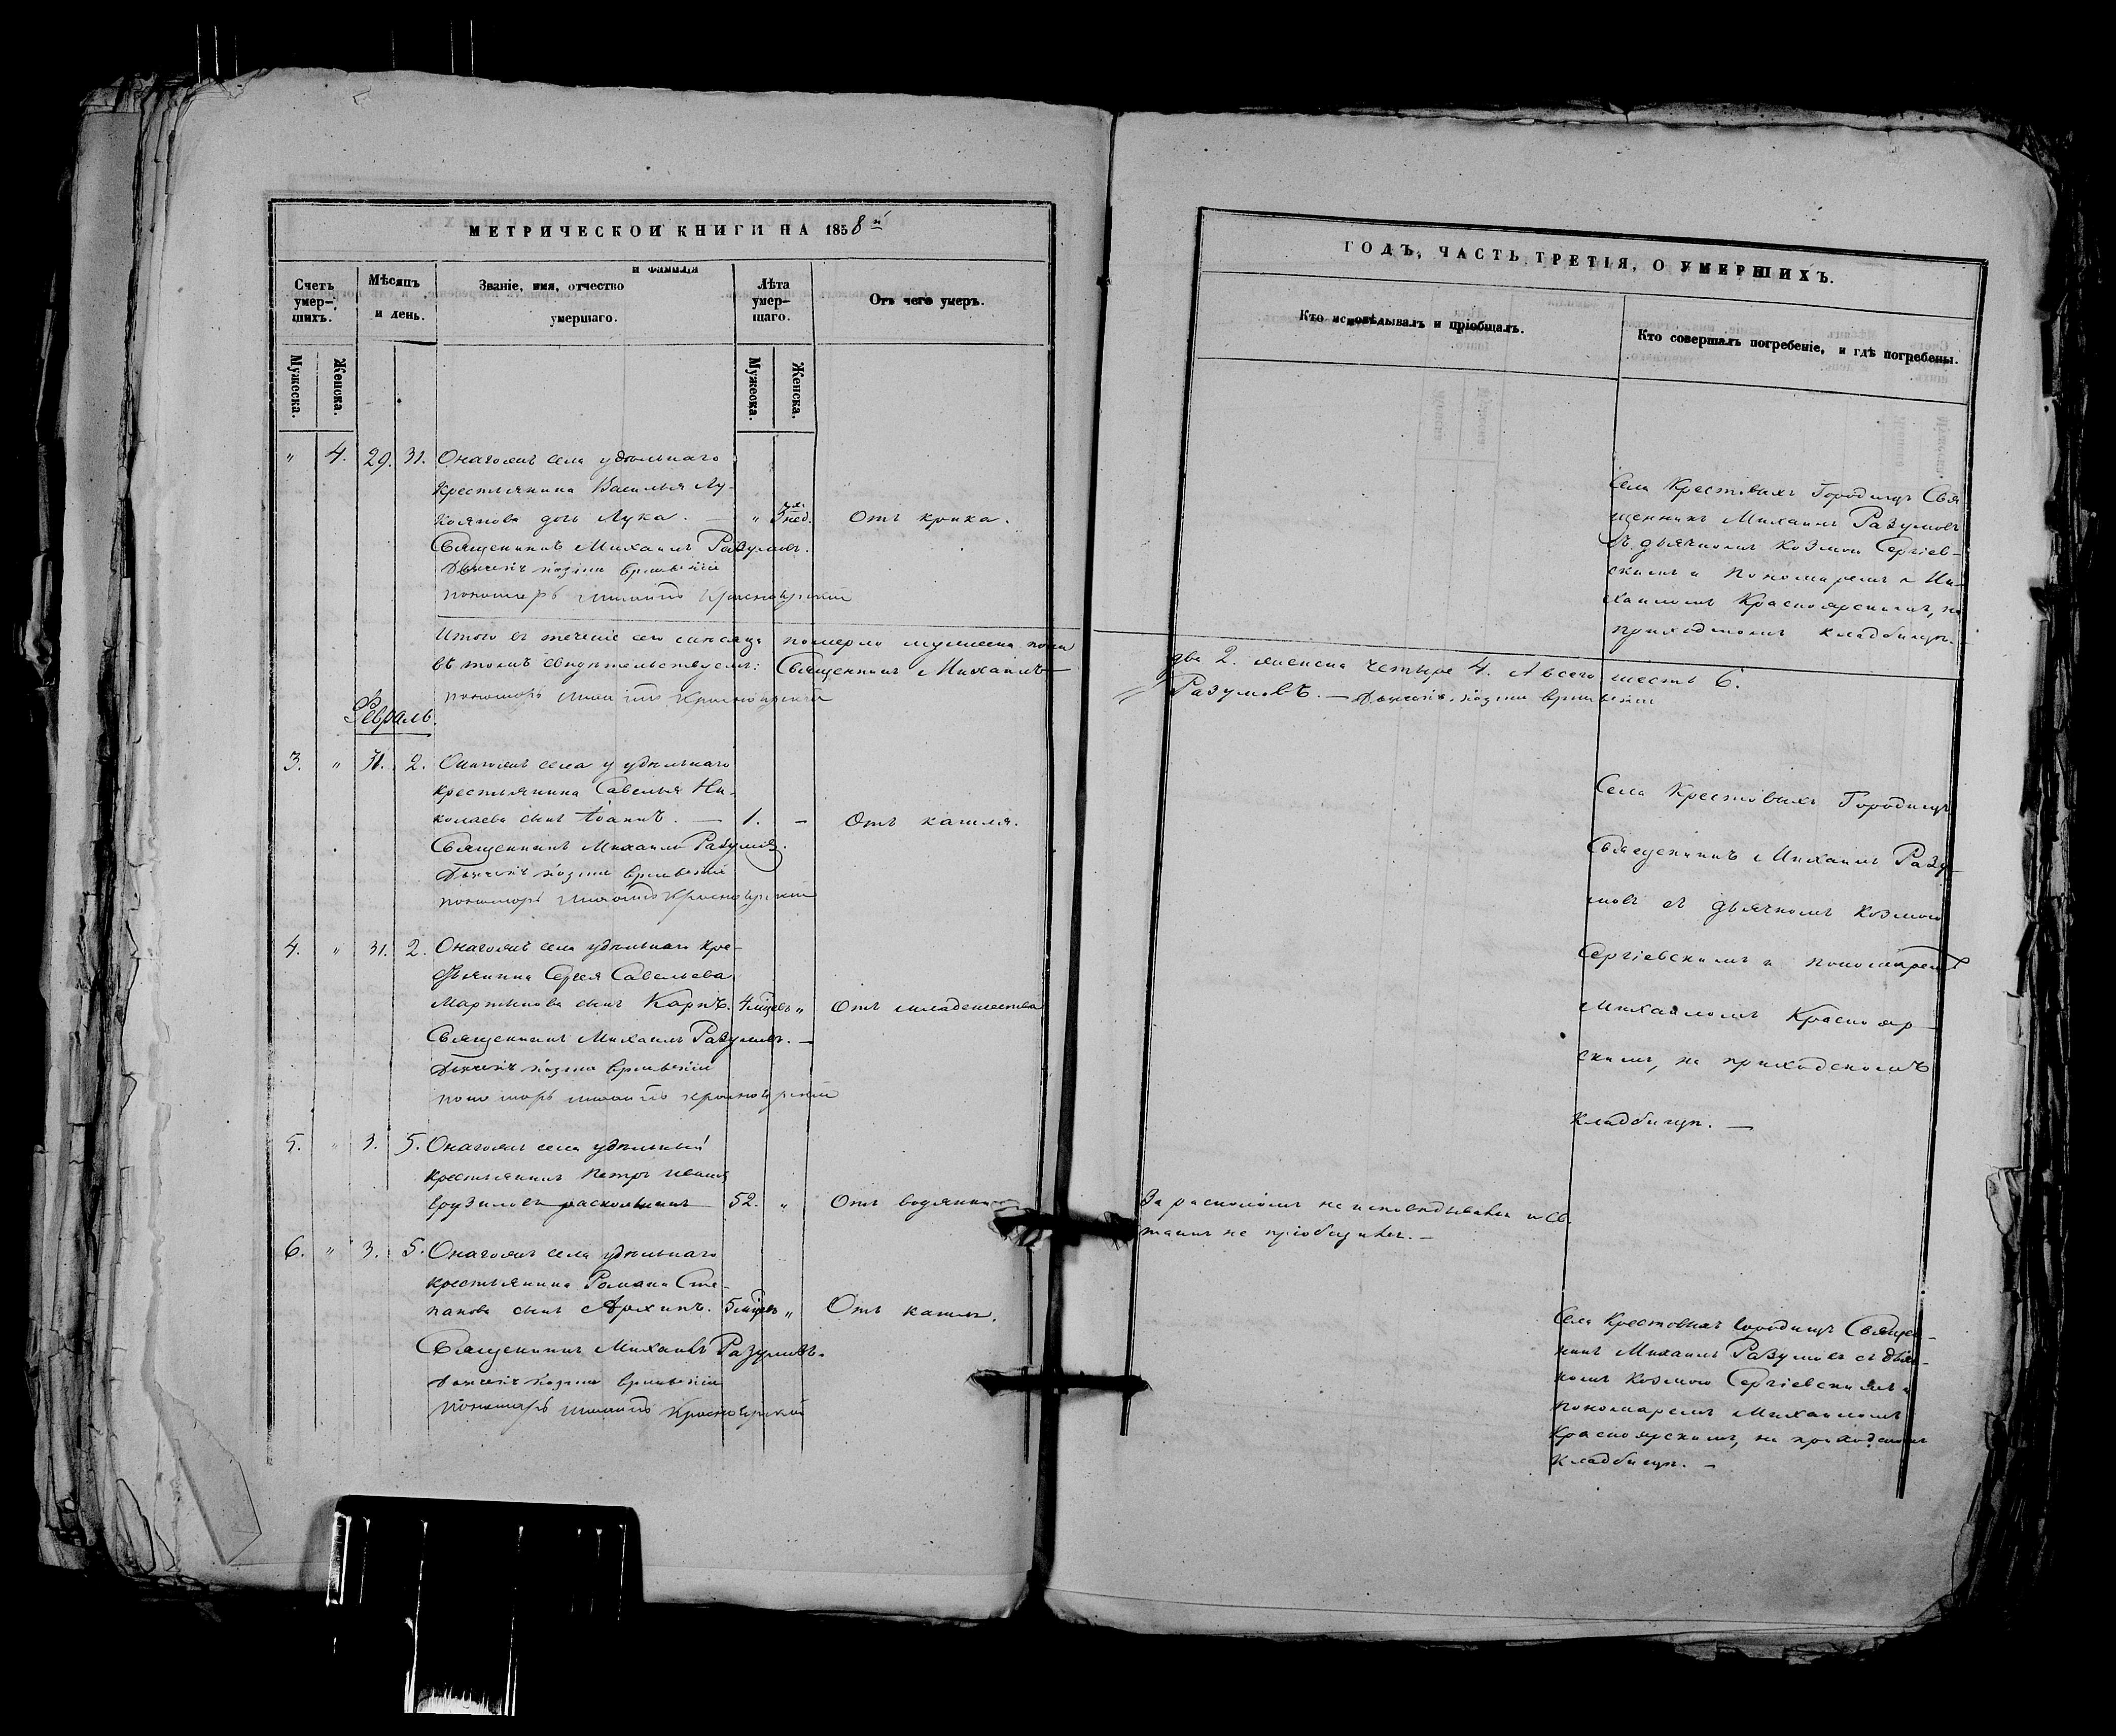 МЕТРИЧЕСКОЙ КНИГИ НА 1858й
Счетъ умер-шихъ.
Мѣсяцъ и день.
Званіе, имя, отчество и фамилія умершаго.
Лѣта умер-шаго.
Отъ чего умеръ.
Мужеска.
Женска.
Мужеска.
Женска.
" 4. 29. 31. Онагожъ села удѣльнаго
крестьянина Василья Лу-
" 3 нед. Отъ крика.
Священникъ Михаилъ Разумовъ.
Дьячекъ Козма Сергіевскій
пономарь Михаилъ Красноярскій
Итого въ теченіе сего мѣсяца померло мужеска пола
въ томъ свидѣтельствуемъ: Священникъ Михаилъ
пономарь Михаилъ Красноярскій
Февраль.
3. " 31. 2. Онагожъ села удѣльнаго
крестьянина Савелья Ни-
колаева сынъ Іоаннъ. — 1. – Отъ кашля.
Священникъ Михаилъ Разумовъ.
Дьячекъ Козма Сергіевскій
пономарь Михаилъ Красноярскій
4. " 31. 2. Онагожъ села удѣльнаго кре-
стьянина Сергея Савельева
Мартынова сынъ Карпъ. 4 мѣсяц. " Отъ младенчества
Священникъ Михаилъ Разумовъ. —
Дьячекъ Козма Сергіевскій
пономарь Михаилъ Красноярскій
5. " 3. 5. Онагожъ села удѣльный
крестьянинъ Петръ Ивановъ
раскольникъ 52. " Отъ водянки
6. " 3. 5. Онагожъ села удѣльнаго
крестьянина Романа Сте-
панова сынъ Архипъ. 5 мѣсяц. " Отъ кашля.
Священникъ Михаилъ Разумовъ.
Дьячекъ Козма Сергіевскій
пономарь Михаилъ Красноярскій
ГОДЪ, ЧАСТЬ ТРЕТІЯ, О УМЕРШИХЪ.
Кто исповѣдывалъ и пріобщалъ.
Кто совершалъ погребеніе, и гдѣ погребены.
Села Крестовыхъ Городищъ Свя-
щенникъ Михаилъ Разумовъ
съ дьячкомъ Козмою Сергіев-
скимъ и пономаремъ Ми-
хаиломъ Красноярскимъ, на
приходскомъ кладбищѣ.
два 2. женска четыре 4. А всего шесть 6.
Разумовъ. — Дьячекъ Козма Сергіевскій
Села Крестовыхъ Городищъ
Священникъ Михаилъ Разу-
мовъ съ дьячкомъ Козмою
Сергіевскимъ и пономаремъ
Михаиломъ Краснояр-
скимъ, на приходскомъ
кладбищѣ. —
За расколомъ не исповѣдыванъ и Св.
таинъ не пріобщенъ. –
Села Крестовыхъ Городищъ Священ-
никъ Михаилъ Разумовъ съ дьяч-
комъ Козмою Сергіевскимъ и
пономаремъ Михаиломъ
Красноярскимъ, на приходскомъ
кладбищѣ. –